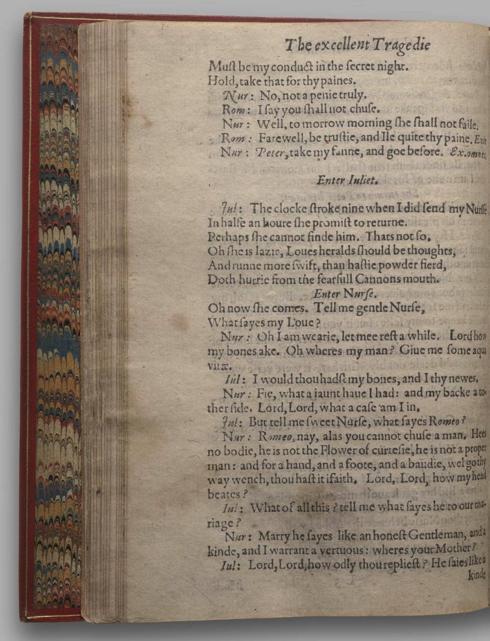 The excellent Tragedie
Must be my conduct in the secret night.
Hold, take that for thy paines.
Nur: No, not a penie truly.
Rom: I say you shall not chuse.
Nur: Well, to morrow morning she shall not faile.
Rom: Farewell, be trustie, and Ile quite thy paine. Exit
Nur: Peter, take my fanne, and goe before. Ex. omnes.
Enter Iuliet.
Jul: The clocke stroke nine when I did send my Nursse
In halfe an houre she promist to returne.
Perhaps she cannot finde him. Thats not so,
Oh she is lazie, Loues heralds should be thoughts,
And runne more swift, than hastie powder fierd,
Doth hurrie from the fearfull Cannons mouth.
Enter Nurse.
Oh now she comes. Tell me gentle Nurse,
What sayes my Loue?
Nur: Oh I am wearie, let mee rest a while. Lord how
my bones ake. Oh wheres my man? Giue me some aqua
vitæ.
Iul: I would thou hadst my bones, and I thy newes.
Nur: Fie, what a iaunt haue I had: and my backe a to-
ther side. Lord, Lord, what a case am I in.
Jul: But tell me sweet Nurse, what sayes Romeo?
Nur: Romeo, nay, alas you cannot chuse a man. Hees
no bodie, he is not the Flower of curtesie, he is not a proper
man: and for a hand, and a foote, and a baudie, wel go thy
way wench, thou hast it ifaith. Lord, Lord, how my head
beates?
Iul: What of all this? tell me what sayes he to our ma-
riage?
Nur: Marry he sayes like an honest Gentleman, and a
kinde, and I warrant a vertuous: wheres your Mother?
Iul: Lord, Lord, how odly thou repliest? He saies like a
kinde